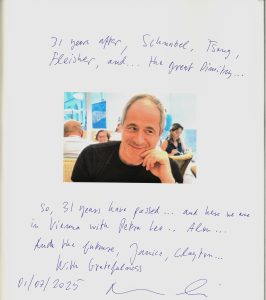 31 years after, Schnabel, Tsong,
Fleisher, and... the great Dimitry...
So, 31 years have passed... and here we are
in Vienna with Petra Leo... Alex...
And the future, Janice, Clayton...
With Gratefulness
01/03/2025